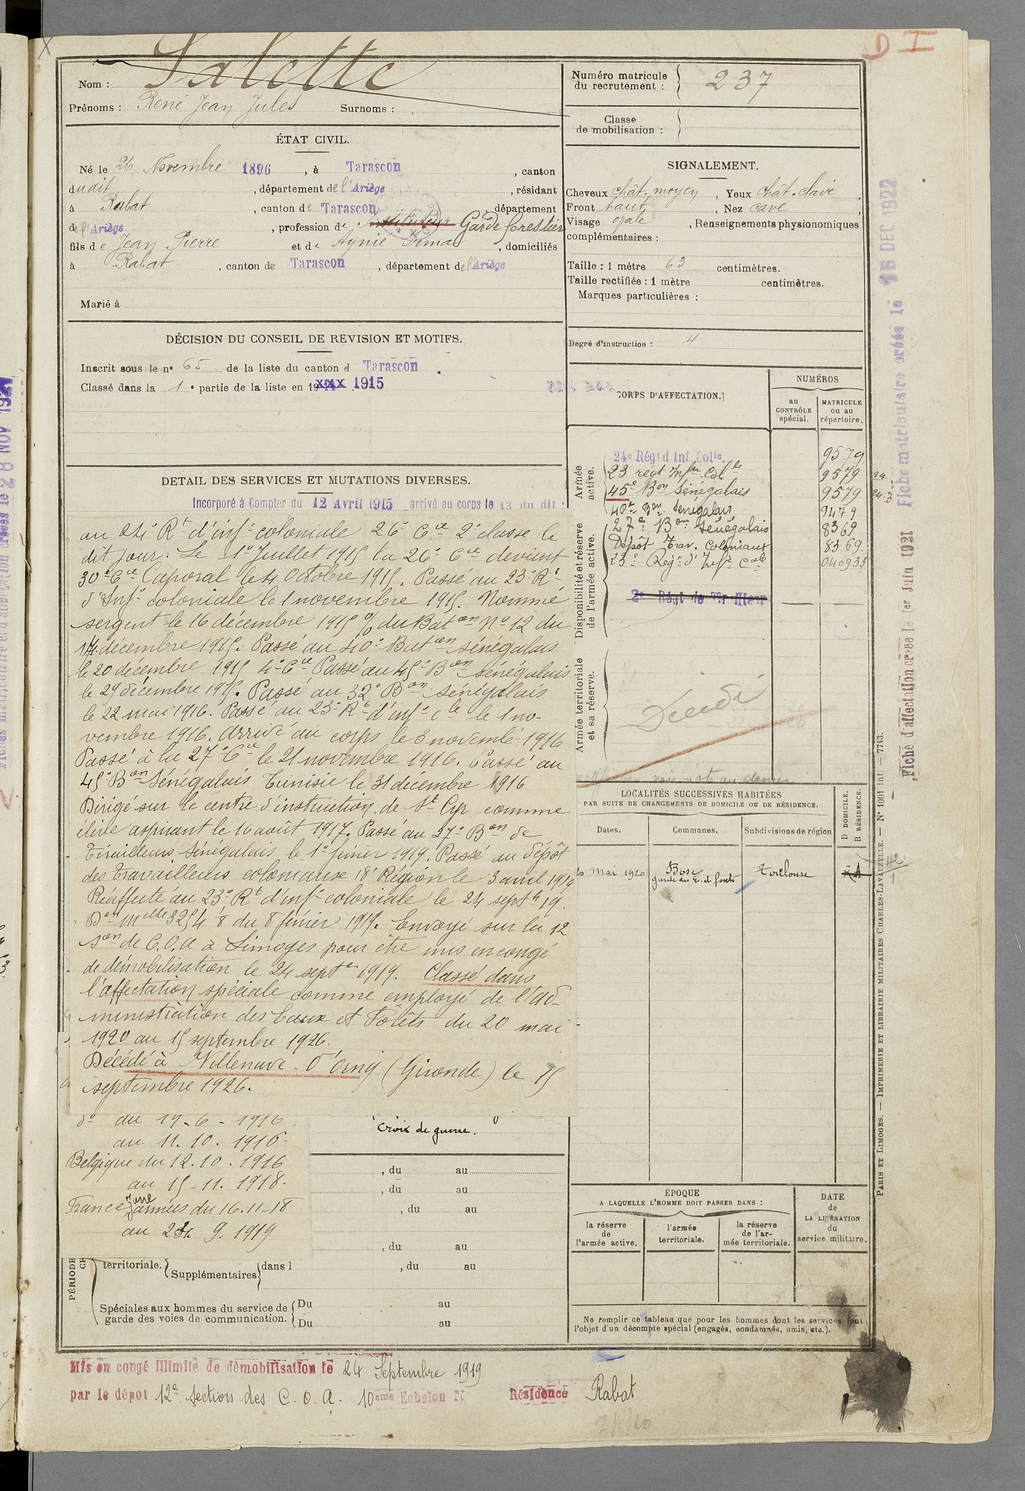 D I
Nom : Salette
Prénoms : René Jean Jules Surnoms :
Numéro matricule du recrutement : 237
Classe de mobilisation :
ÉTAT CIVIL.
Né le 26 Novembre 1896, à Tarascon, canton
dudit, département de l'Ariège, résidant
à Rabat, canton de Tarascon, département
de l'Ariège, profession de Instituteur Garde forestier
fils de Jean Pierre et de Aynié Irma, domiciliés
à Rabat, canton de Tarascon, département de l'Ariège
Marié à
SIGNALEMENT.
Cheveux chât. moyen, Yeux chât. clair
Front haut, Nez cave
Visage ovale, Renseignements physionomiques
complémentaires :
Taille : 1 mètre 63 centimètres.
Taille rectifiée : 1 mètre centimètres.
Marques particulières :
Degré d'instruction : 4
DÉCISION DU CONSEIL DE REVISION ET MOTIFS.
Inscrit sous le n° 65 de la liste du canton d Tarascon.
Classé dans la 1e partie de la liste en 19 XXX 1915
CORPS D'AFFECTATION.
NUMÉROS
AU CONTRÔLE spécial.
MATRICULE ou au répertoire.
Armée active.
24e Régt d Inf. Colle 9579
23 regt Infrie Colle 9579
45e Bon Sénégalais 9579
40e Bon Senegalais 9479
27e Bon Sénégalais 8369
Dépôt Trav. Coloniaux 8369
23e Regt d'Infie Cale 040933
Disponibilité et réserve de l'armée active.
Armée territoriale et sa réserve.
Décédé
DETAIL DES SERVICES ET MUTATIONS DIVERSES.
Incorporé à Compter du 12 Avril 1915 arrivé au corps le 13 du dit :
au 24e Rt d'inf. coloniale 26e Cie 2e classe le
dit jour. Le 1er Juillet 1915 la 26e Cie devient
30e Cie Caporal le 4 Octobre 1915. Passé au 23e Rt
d'Inf. coloniale le 1 novembre 1915. Nommé
sergent le 16 décembre 1915 % du Baton No 12 du
14 décembre 1915. Passé au 40e Baton sénégalais
le 20 décembre 1915 4e Cie Passé au 45e Bon sénégalais
le 29 décembre 1915. Passé au 32e Bon sénégalais
le 22 mai 1916. Passé au 23e Rt d'inf. cle le 1 no-
vembre 1916. Arrivé au corps le 3 novembre 1916
Passé à la 27e Cie le 21 novembre 1916. Passé au
45e Bon Sénégalais Tunisie le 31 décembre 1916
Dirigé sur le centre d'instruction de St Cyr comme
élève aspirant le 16 août 1917. Passé au 27e Bon de
Tirailleurs Sénégalais le 1er février 1919. Passé au dépôt
des Travailleurs coloniaux 18e Région le 3 avril 1919
Réaffecté au 23e Rt d'inf. coloniale le 24 septbre 19.
Don Mlle 3254 8 du 8 février 1919. Envoyé sur la 12
Son de C.O.A à Limoges pour être mis en congé
de démobilisation le 24 septe 1919. Classé dans
l'affectation spéciale comme employé de l'ad-
ministration des Eaux et Forêts du 20 mai
1920 au 15 septembre 1926.
Décédé à Villenave-d'Ornon (Gironde) le 15
septembre 1926.
do du 19-6-1916
au 11.10.1916.
Belgique du 12.10.1916
au 15-11.1918.
France Zone armées du 16.11-18
au 24 9.1919
Croix de guerre.
, du au
, du au
, du au
, du au
territoriale. Supplémentaires dans l , du au
PÉRIODE
Spéciales aux hommes du service de garde des voies de communication.
Du au
Du au
LOCALITÉS SUCCESSIVES HABITÉES
PAR SUITE DE CHANGEMENTS DE DOMICILE OU DE RÉSIDENCE.
Dates. Communes. Subdivisions de région
D DOMICILE. R RÉSIDENCE.
Mai 1920 Toulouse
ÉPOQUE
A LAQUELLE L'HOMME DOIT PASSER DANS :
la réserve de l'armée active.
l'armée territoriale.
la réserve de l'armée territoriale.
DATE de LA LIBÉRATION du service militaire.
Ne remplir ce tableau que pour les hommes dont les services font
l'objet d'un décompte spécial (engagés, condamnés, omis, etc.).
Mis en congé illimité de démobilisation le 24 Septembre 1919
par le dépôt 12e section des C.O.A. 10eme Echelon N Résidence Rabat
Fiche matriculaire créée le 15 DEC 1922
Fiche d'affectation créée le 1er Juin 1921
PARIS ET LIMOGES. — IMPRIMERIE ET LIBRAIRIE MILITAIRES CHARLES-LAVAUZELLE. — N° 1001 Int. — 7713.